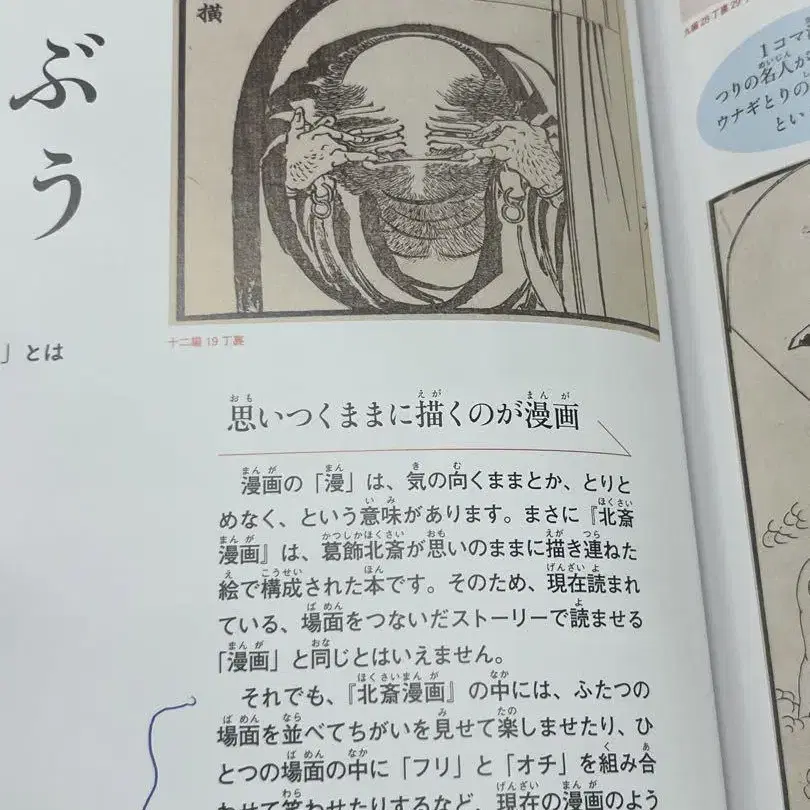 ぶう
」とは
横
十二編 19 丁裏
思いつくままに描くのが漫画
漫画の「漫」は、気の向くままとか、とりと
めなく、という意味があります。まさに『北斎
漫画』は、葛飾北斎が思いのままに描き連ねた
絵で構成された本です。そのため、現在読まれ
ている、場面をつないだストーリーで読ませる
「漫画」と同じとはいえません。
それでも、『北斎漫画』の中には、ふたつの
場面を並べてちがいを見せて楽しませたり、ひ
とつの場面の中に「フリ」と「オチ」を組み合
わせて笑わせたりするなど、現在の漫画のよう
1コマ
つりの名人が
ウナギとりの
とい